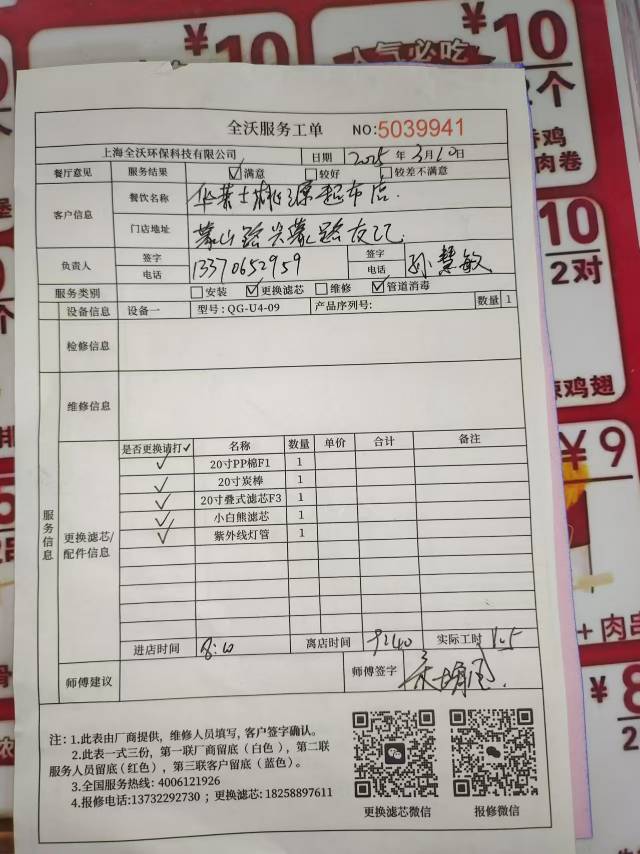 ¥10
¥10
人气必吃
2个
香鸡
肉卷
全沃服务工单 NO:5039941
上海全沃环保科技有限公司 日期 2025 年 3月10日
餐厅意见 服务结果 ☑满意 □较好 □较差不满意
客户信息 餐饮名称 华莱士
门店地址 蒙山路
负责人 签字 签字
电话 13370652959 电话 孙慧敏
服务类别 □安装 ☑更换滤芯 □维修 ☑管道消毒
设备信息 设备一 型号: QG-U4-09 产品序列号: 数量 1
检修信息
维修信息
服务信息
更换滤芯/配件信息
是否更换请打✓ 名称 数量 单价 合计 备注
✓ 20寸PP棉F1 1
✓ 20寸炭棒 1
✓ 20寸叠式滤芯F3 1
✓ 小白熊滤芯 1
✓ 紫外线灯管 1
进店时间 8:10 离店时间 9:40 实际工时 1.5
师傅建议 师傅签字
注: 1.此表由厂商提供，维修人员填写，客户签字确认。
2.此表一式三份，第一联厂商留底（白色），第二联
服务人员留底（红色），第三联客户留底（蓝色）。
3.全国服务热线: 4006121926
4.报修电话:13732292730；更换滤芯: 18258897611
更换滤芯微信 报修微信
10
2对
鸡翅
¥9
+肉串
¥8